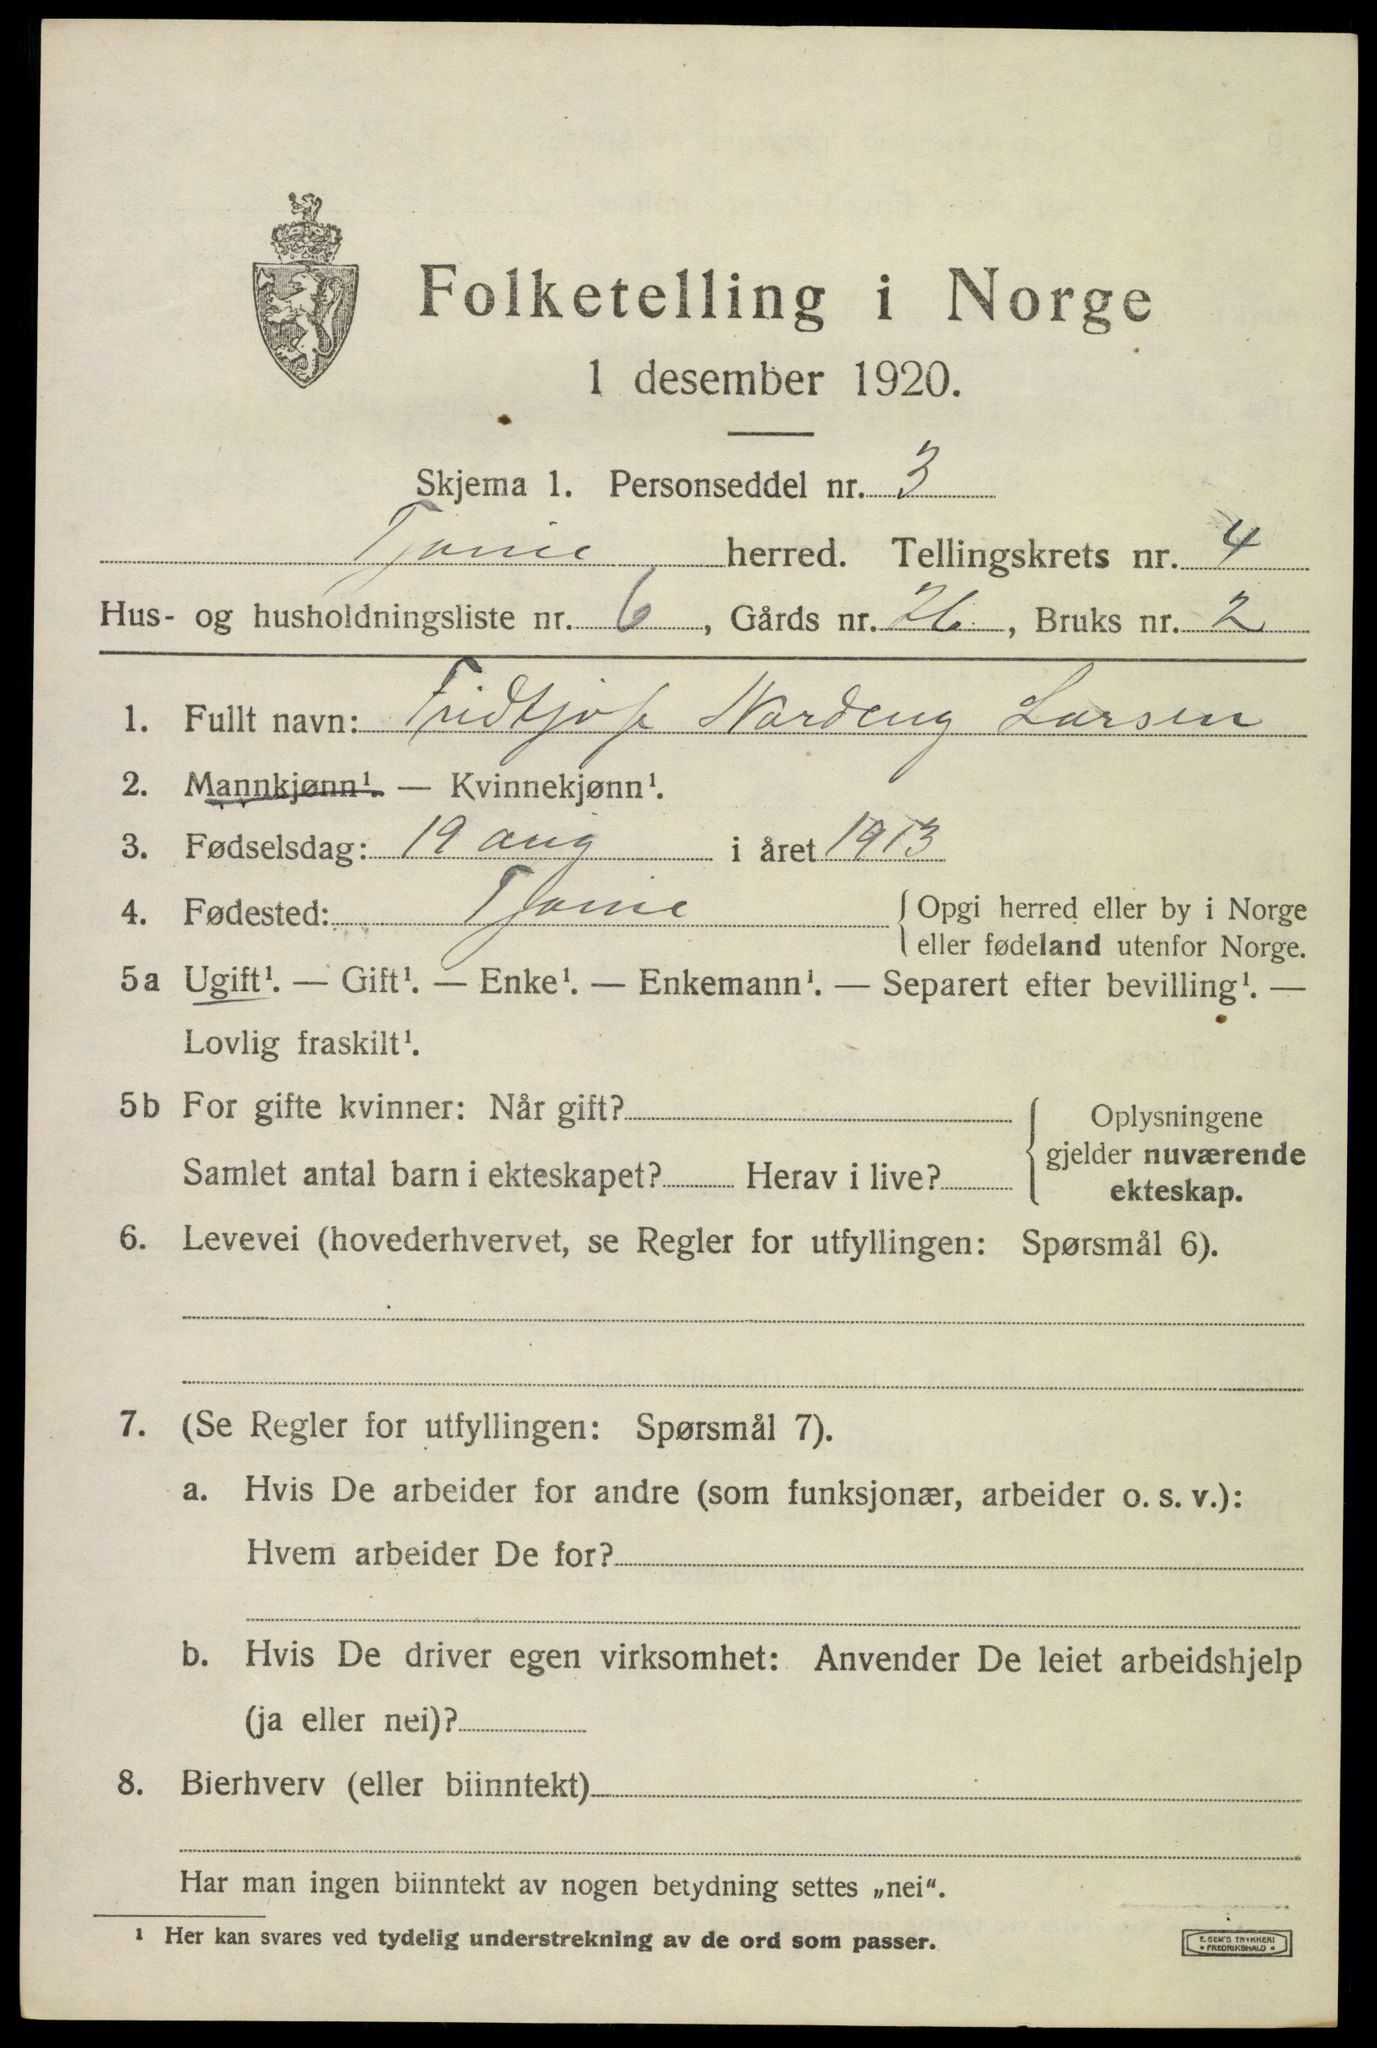 Folketelling i Norge
1 desember 1920.
Skjema 1. Personseddel nr. 3
Tjøme herred. Tellingskrets nr. 4
Hus- og husholdningsliste nr. 6, Gårds nr. 26, Bruks nr. 2
1. Fullt navn: Fridtjof Nordeng Larsen
2. Mannkjønn¹. — Kvinnekjønn¹.
3. Fødselsdag: 19 aug i året 1913
4. Fødested: Tjøme { Opgi herred eller by i Norge
eller fødeland utenfor Norge.
5a Ugift¹. — Gift¹. — Enke¹. — Enkemann¹. — Separert efter bevilling¹. —
Lovlig fraskilt¹.
5b For gifte kvinner: Når gift? { Oplysningene
gjelder nuværende
Samlet antal barn i ekteskapet? Herav i live? ekteskap.
6. Levevei (hovederhvervet, se Regler for utfyllingen: Spørsmål 6).
7. (Se Regler for utfyllingen: Spørsmål 7).
a. Hvis De arbeider for andre (som funksjonær, arbeider o. s. v.):
Hvem arbeider De for?
b. Hvis De driver egen virksomhet: Anvender De leiet arbeidshjelp
(ja eller nei)?
8. Bierhverv (eller biinntekt)
Har man ingen biinntekt av nogen betydning settes „nei".
¹ Her kan svares ved tydelig understrekning av de ord som passer.
E. SEM'S TRYKKERI
• FREDRIKSHALD •